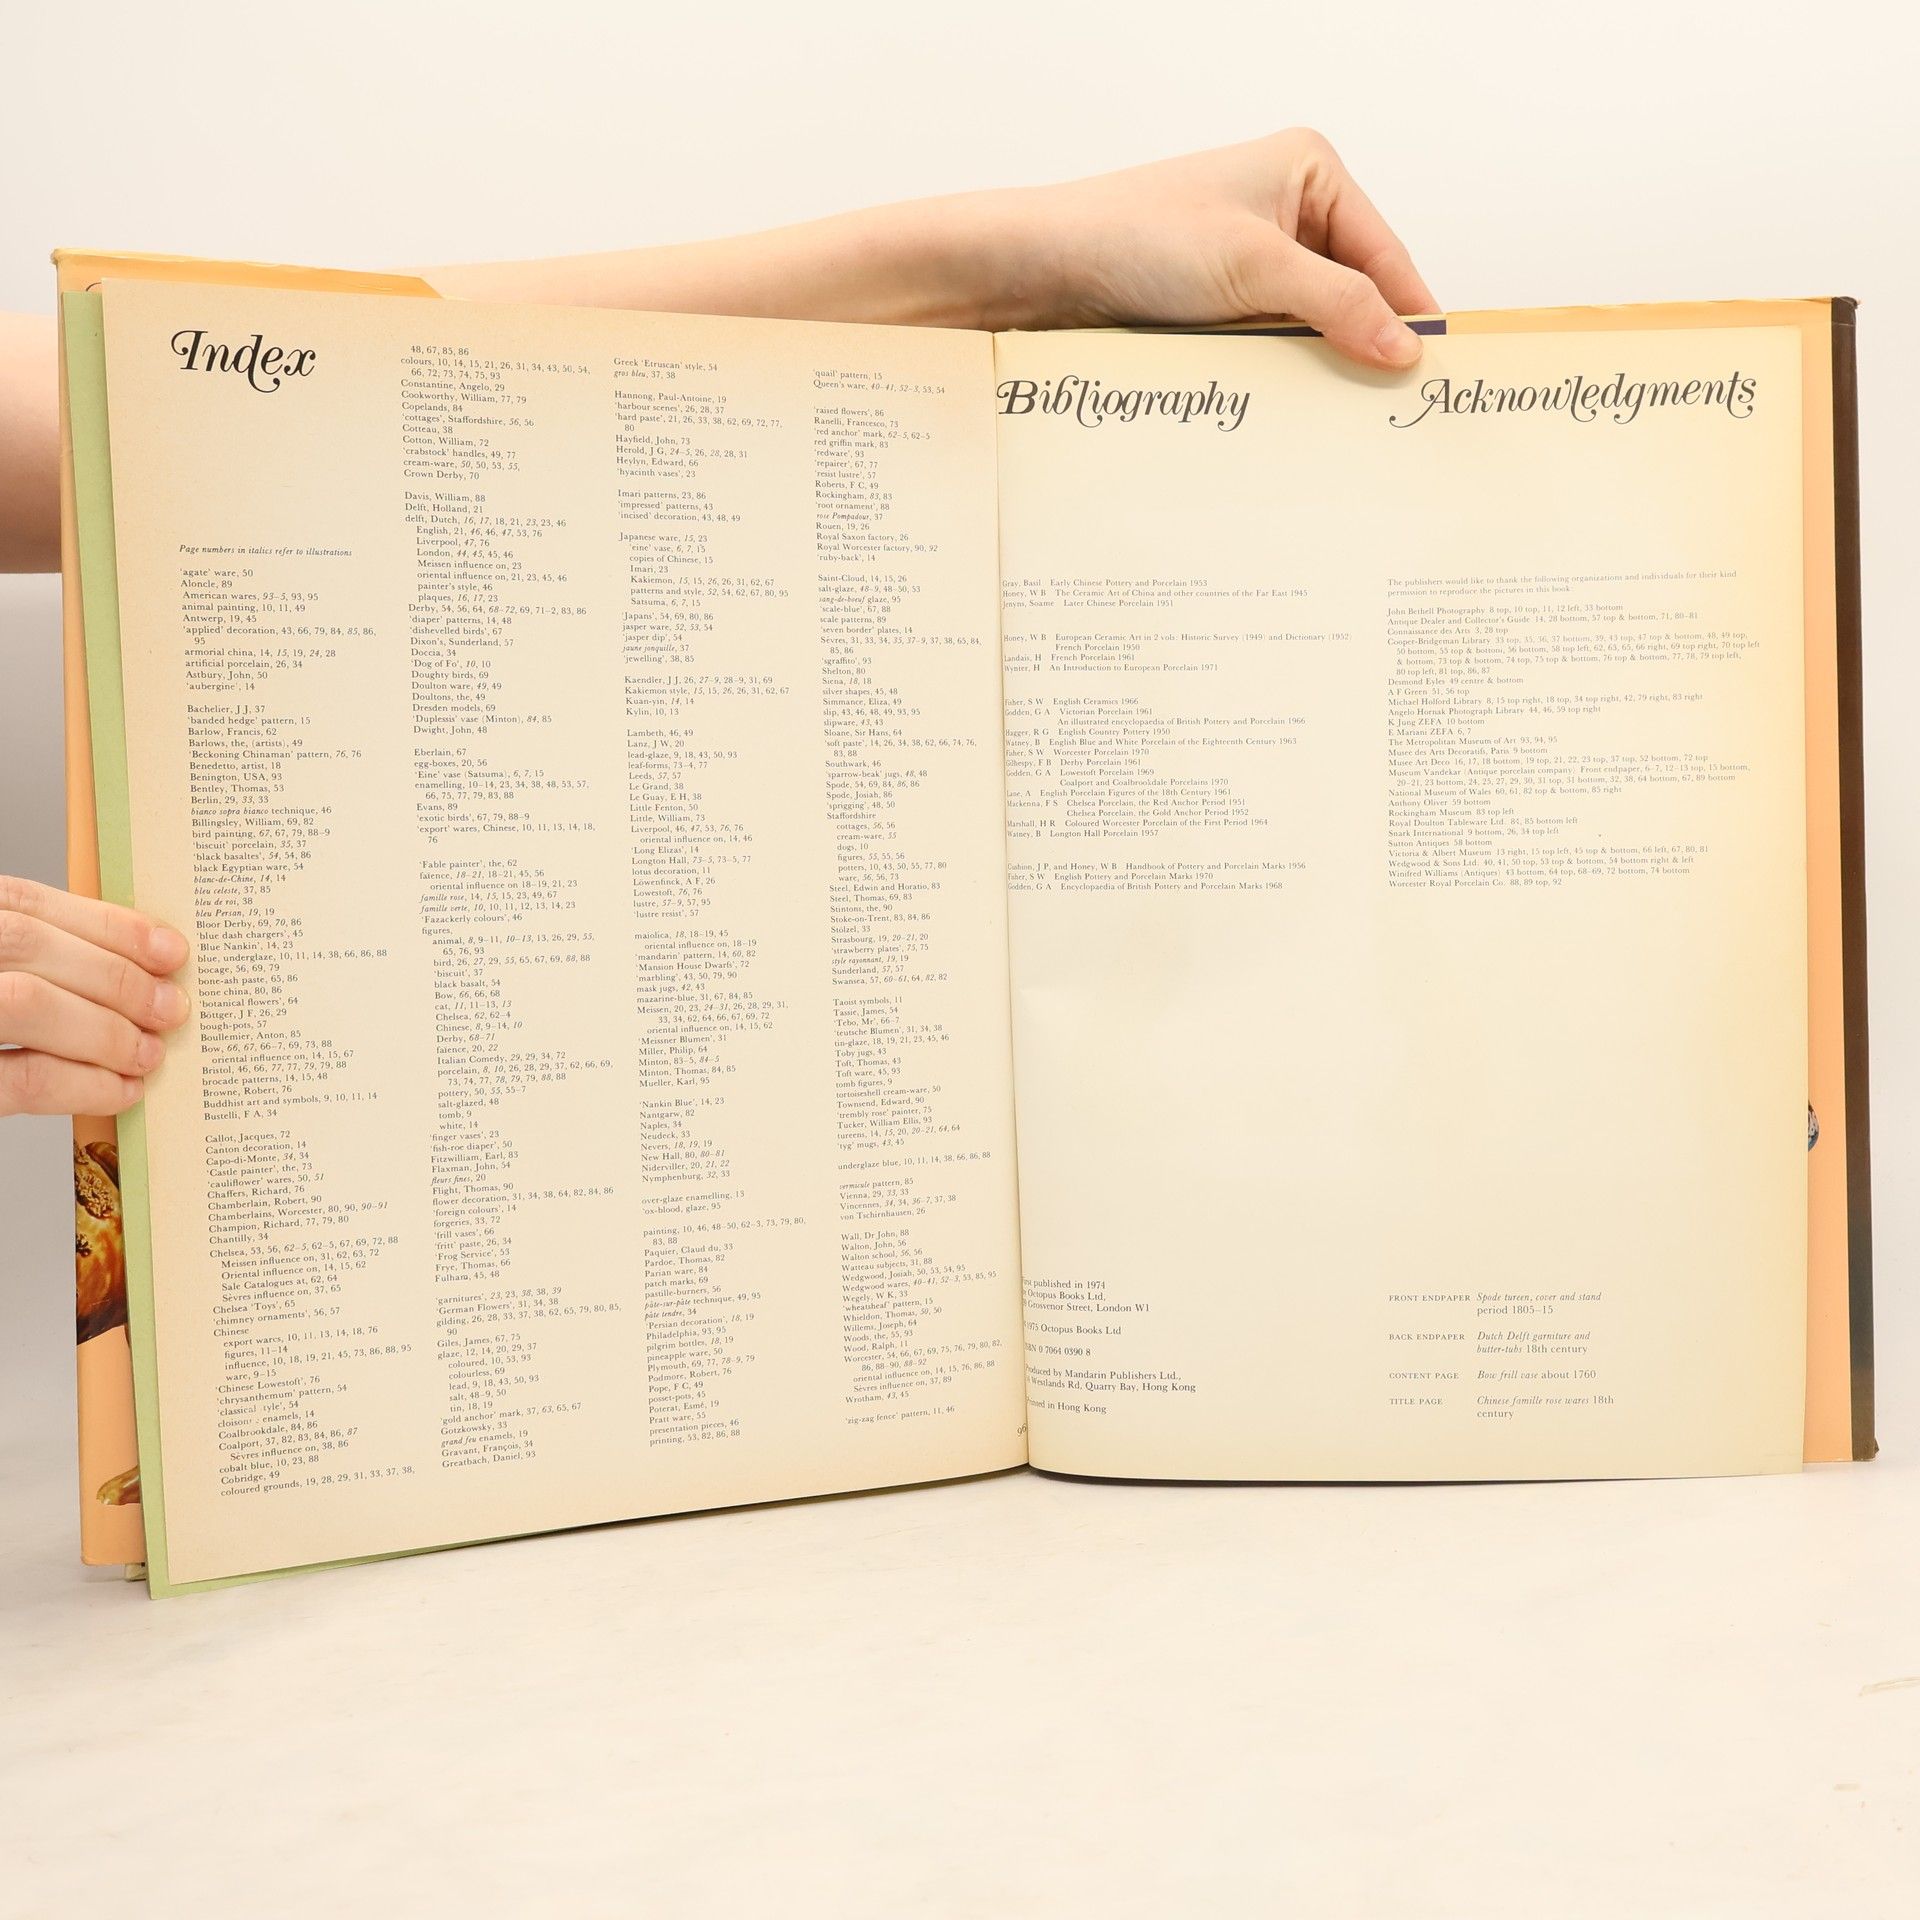 Index
Page numbers in italics refer to illustrations
'agate' ware, 50
Aloncle, 89
American wares, 93–5, 93, 95
animal painting, 10, 11, 49
Antwerp, 19, 45
'applied' decoration, 43, 66, 79, 84, 85, 86,
95
armorial china, 14, 15, 19, 24, 28
artificial porcelain, 26, 34
Astbury, John, 50
'aubergine', 14
Bachelier, J J, 37
'banded hedge' pattern, 15
Barlow, Francis, 62
Barlows, the, (artists), 49
'Beckoning Chinaman' pattern, 76, 76
Benedetto, artist, 18
Benington, USA, 93
Bentley, Thomas, 53
Berlin, 29, 33, 33
bianco sopra bianco technique, 46
Billingsley, William, 69, 82
bird painting, 67, 67, 79, 88–9
'biscuit' porcelain, 35, 37
'black basaltes', 54, 54, 86
black Egyptian ware, 54
blanc-de-Chine, 14, 14
bleu celeste, 37, 85
bleu de roi, 38
bleu Persan, 19, 19
Bloor Derby, 69, 70, 86
'blue dash chargers', 45
'Blue Nankin', 14, 23
blue, underglaze, 10, 11, 14, 38, 66, 86, 88
bocage, 56, 69, 79
bone-ash paste, 65, 86
bone china, 80, 86
'botanical flowers', 64
Böttger, J F, 26, 29
bough-pots, 57
Boullemier, Anton, 85
Bow, 66, 67, 66–7, 69, 73, 88
oriental influence on, 14, 15, 67
Bristol, 46, 66, 77, 77, 79, 79, 88
brocade patterns, 14, 15, 48
Browne, Robert, 76
Buddhist art and symbols, 9, 10, 11, 14
Bustelli, F A, 34
Callot, Jacques, 72
Canton decoration, 14
Capo-di-Monte, 34, 34
'Castle painter', the, 73
'cauliflower' wares, 50, 51
Chaffers, Richard, 76
Chamberlain, Robert, 90
Chamberlains, Worcester, 80, 90, 90–91
Champion, Richard, 77, 79, 80
Chantilly, 34
Chelsea, 53, 56, 62–5, 62–5, 67, 69, 72, 88
Meissen influence on, 31, 62, 63, 72
Oriental influence on, 14, 15, 62
Sale Catalogues at, 62, 64
Sèvres influence on, 37, 65
Chelsea 'Toys', 65
'chimney ornaments', 56, 57
Chinese
export wares, 10, 11, 13, 14, 18, 76
figures, 11–14
influence, 10, 18, 19, 21, 45, 73, 86, 88, 95
ware, 9–15
'Chinese Lowestoft', 76
'chrysanthemum' pattern, 54
'classical style', 54
enamels, 14
Coalbrookdale, 84, 86
Coalport, 37, 82, 83, 84, 86, 87
Sèvres influence on, 38, 86
cobalt blue, 10, 23, 88
Cobridge, 49
coloured grounds, 19, 28, 29, 31, 33, 37, 38,
48, 67, 85, 86
colours, 10, 14, 15, 21, 26, 31, 34, 43, 50, 54,
66, 72, 73, 74, 75, 93
Constantine, Angelo, 29
Cookworthy, William, 77, 79
Copelands, 84
'cottages', Staffordshire, 56, 56
Cotteau, 38
Cotton, William, 72
'crabstock' handles, 49, 77
cream-ware, 50, 50, 53, 55,
Crown Derby, 70
Davis, William, 88
Delft, Holland, 21
delft, Dutch, 16, 17, 18, 21, 23, 23, 46
English, 21, 46, 46, 47, 53, 76
Liverpool, 47, 76
London, 44, 45, 45, 46
Meissen influence on, 23
oriental influence on, 21, 23, 45, 46
painter's style, 46
plaques, 16, 17, 23
Derby, 54, 56, 64, 68–72, 69, 71–2, 83, 86
'diaper' patterns, 14, 48
'dishevelled birds', 67
Dixon's, Sunderland, 57
Doccia, 34
'Dog of Fo', 10, 10
Doughty birds, 69
Doulton ware, 49, 49
Doultons, the, 49
Dresden models, 69
'Duplessis' vase (Minton), 84, 85
Dwight, John, 48
Eberlain, 67
egg-boxes, 20, 56
'Eine' vase (Satsuma), 6, 7, 15
enamelling, 10–14, 23, 34, 38, 48, 53, 57,
66, 75, 77, 79, 83, 88
Evans, 89
'exotic birds', 67, 79, 88–9
'export' wares, Chinese, 10, 11, 13, 14, 18,
76
'Fable painter', the, 62
faïence, 18–21, 18–21, 45, 56
oriental influence on 18–19, 21, 23
famille rose, 14, 15, 15, 23, 49, 67
famille verte, 10, 10, 11, 12, 13, 14, 23
'Fazackerly colours', 46
figures,
animal, 8, 9–11, 10–13, 13, 26, 29, 55,
65, 76, 93
bird, 26, 27, 29, 55, 65, 67, 69, 88, 88
'biscuit', 37
black basalt, 54
Bow, 66, 66, 68
cat, 11, 11–13, 13
Chelsea, 62, 62–4
Chinese, 8, 9–14, 10
Derby, 68–71
faïence, 20, 22
Italian Comedy, 29, 29, 34, 72
porcelain, 8, 10, 26, 28, 29, 37, 62, 66, 69,
73, 74, 77, 78, 79, 79, 88, 88
pottery, 50, 55, 55–7
salt-glazed, 48
tomb, 9
white, 14
'finger vases', 23
'fish-roe diaper', 50
Fitzwilliam, Earl, 83
Flaxman, John, 54
fleurs fines, 20
Flight, Thomas, 90
flower decoration, 31, 34, 38, 64, 82, 84, 86
'foreign colours', 14
forgeries, 33, 72
'frill vases', 66
'fritt' paste, 26, 34
'Frog Service', 53
Frye, Thomas, 66
Fulham, 45, 48
'garnitures', 23, 23, 38, 38, 39
'German Flowers', 31, 34, 38
gilding, 26, 28, 33, 37, 38, 62, 65, 79, 80, 85,
90
Giles, James, 67, 75
glaze, 12, 14, 20, 29, 37
coloured, 10, 53, 93
colourless, 69
lead, 9, 18, 43, 50, 93
salt, 48–9, 50
tin, 18, 19
'gold anchor' mark, 37, 63, 65, 67
Gotzkowsky, 33
grand feu enamels, 19
Gravant, François, 34
Greatbach, Daniel, 93
Greek 'Etruscan' style, 54
gros bleu, 37, 38
Hannong, Paul-Antoine, 19
'harbour scenes', 26, 28, 37
'hard paste', 21, 26, 33, 38, 62, 69, 72, 77,
80
Hayfield, John, 73
Herold, J G, 24–5, 26, 28, 28, 31
Heylyn, Edward, 66
'hyacinth vases', 23
Imari patterns, 23, 86
'impressed' patterns, 43
'incised' decoration, 43, 48, 49
Japanese ware, 15, 23
'eine' vase, 6, 7, 15
copies of Chinese, 15
Imari, 23
Kakiemon, 15, 15, 26, 26, 31, 62, 67
patterns and style, 52, 54, 62, 67, 80, 95
Satsuma, 6, 7, 15
'Japans', 54, 69, 80, 86
jasper ware, 52, 53, 54
'jasper dip', 54
jaune jonquille, 37
'jewelling', 38, 85
Kaendler, J J, 26, 27–9, 28–9, 31, 69
Kakiemon style, 15, 15, 26, 26, 31, 62, 67
Kuan-yin, 14, 14
Kylin, 10, 13
Lambeth, 46, 49
Lanz, J W, 20
lead-glaze, 9, 18, 43, 50, 93
leaf-forms, 73–4, 77
Leeds, 57, 57
Le Grand, 38
Le Guay, E H, 38
Little Fenton, 50
Little, William, 73
Liverpool, 46, 47, 53, 76, 76
oriental influence on, 14, 46
'Long Elizas', 14
Longton Hall, 73–5, 73–5, 77
lotus decoration, 11
Löwenfinck, A F, 26
Lowestoft, 76, 76
lustre, 57–9, 57, 95
'lustre resist', 57
maiolica, 18, 18–19, 45
oriental influence on, 18–19
'mandarin' pattern, 14, 60, 82
'Mansion House Dwarfs', 72
'marbling', 43, 50, 79, 90
mask jugs, 42, 43
mazarine-blue, 31, 67, 84, 85
Meissen, 20, 23, 24–31, 26, 28, 29, 31,
33, 34, 62, 64, 66, 67, 69, 72
oriental influence on, 14, 15, 62
'Meissner Blumen', 31
Miller, Philip, 64
Minton, 83–5, 84–5
Minton, Thomas, 84, 85
Mueller, Karl, 95
'Nankin Blue', 14, 23
Nantgarw, 82
Naples, 34
Neudeck, 33
Nevers, 18, 19, 19
New Hall, 80, 80–81
Niderviller, 20, 21, 22
Nymphenburg, 32, 33
over-glaze enamelling, 13
'ox-blood, glaze, 95
painting, 10, 46, 48–50, 62–3, 73, 79, 80,
83, 88
Paquier, Claud du, 33
Pardoe, Thomas, 82
Parian ware, 84
patch marks, 69
pastille-burners, 56
pâte-sur-pâte technique, 49, 95
pâte tendre, 34
'Persian decoration', 18, 19
Philadelphia, 93, 95
pilgrim bottles, 18, 19
pineapple ware, 50
Plymouth, 69, 77, 78–9, 79
Podmore, Robert, 76
Pope, F C, 49
posset-pots, 45
Poterat, Esmé, 19
Pratt ware, 55
presentation pieces, 46
printing, 53, 82, 86, 88
'quail' pattern, 15
Queen's ware, 40–41, 52–3, 53, 54
'raised flowers', 86
Ranelli, Francesco, 73
'red anchor' mark, 62–5, 62–5
red griffin mark, 83
'redware', 93
'repairer', 67, 77
'resist lustre', 57
Roberts, F C, 49
Rockingham, 83, 83
'root ornament', 88
rose Pompadour, 37
Rouen, 19, 26
Royal Saxon factory, 26
Royal Worcester factory, 90, 92
'ruby-back', 14
Saint-Cloud, 14, 15, 26
salt-glaze, 48–9, 48–50, 53
sang-de-boeuf glaze, 95
'scale-blue', 67, 88
scale patterns, 89
'seven border' plates, 14
Sèvres, 31, 33, 34, 35, 37–9, 37, 38, 65, 84,
85, 86
'sgraffito', 93
Shelton, 80
Siena, 18, 18
silver shapes, 45, 48
Simmance, Eliza, 49
slip, 43, 46, 48, 49, 93, 95
slipware, 43, 43
Sloane, Sir Hans, 64
'soft paste', 14, 26, 34, 38, 62, 66, 74, 76,
83, 88
Southwark, 46
'sparrow-beak' jugs, 48, 48
Spode, 54, 69, 84, 86, 86
Spode, Josiah, 86
'sprigging', 48, 50
Staffordshire
cottages, 56, 56
cream-ware, 55
dogs, 10
figures, 55, 55, 56
potters, 10, 43, 50, 55, 77, 80
ware, 56, 56, 73
Steel, Edwin and Horatio, 83
Steel, Thomas, 69, 83
Stintons, the, 90
Stoke-on-Trent, 83, 84, 86
Stölzel, 33
Strasbourg, 19, 20–21, 20
'strawberry plates', 75, 75
style rayonnant, 19, 19
Sunderland, 57, 57
Swansea, 57, 60–61, 64, 82, 82
Taoist symbols, 11
Tassie, James, 54
'Tebo, Mr', 66–7
'teutsche Blumen', 31, 34, 38
tin-glaze, 18, 19, 21, 23, 45, 46
Toby jugs, 43
Toft, Thomas, 43
Toft ware, 45, 93
tomb figures, 9
tortoiseshell cream-ware, 50
Townsend, Edward, 90
'trembly rose' painter, 75
Tucker, William Ellis, 93
tureens, 14, 15, 20, 20–21, 64, 64
'tyg' mugs, 43, 45
underglaze blue, 10, 11, 14, 38, 66, 86, 88
vermicule pattern, 85
Vienna, 29, 33, 33
Vincennes, 34, 34, 36–7, 37, 38
von Tschirnhausen, 26
Wall, Dr John, 88
Walton, John, 56
Walton school, 56, 56
Watteau subjects, 31, 88
Wedgwood, Josiah, 50, 53, 54, 95
Wedgwood wares, 40–41, 52–3, 53, 85, 95
Wegely, W K, 33
'wheatsheaf' pattern, 15
Whieldon, Thomas, 50, 50
Willems, Joseph, 64
Woods, the, 55, 93
Wood, Ralph, 11
Worcester, 54, 66, 67, 69, 75, 76, 79, 80, 82,
86, 88–90, 88–92
oriental influence on, 14, 15, 76, 86, 88
Sèvres influence on, 37, 89
Wrotham, 43, 45
'zig-zag fence' pattern, 11, 46
96
Bibliography
Gray, Basil Early Chinese Pottery and Porcelain 1953
Honey, W B The Ceramic Art of China and other countries of the Far East 1945
Jenyns, Soame Later Chinese Porcelain 1951
Honey, W B European Ceramic Art in 2 vols: Historic Survey (1949) and Dictionary (1952)
French Porcelain 1950
Landais, H French Porcelain 1961
Wynter, H An Introduction to European Porcelain 1971
Fisher, S W English Ceramics 1966
Godden, G A Victorian Porcelain 1961
An illustrated encyclopaedia of British Pottery and Porcelain 1966
Haggar, R G English Country Pottery 1950
Watney, B English Blue and White Porcelain of the Eighteenth Century 1963
Fisher, S W Worcester Porcelain 1970
Gilhespy, F B Derby Porcelain 1961
Godden, G A Lowestoft Porcelain 1969
Coalport and Coalbrookdale Porcelains 1970
Lane, A English Porcelain Figures of the 18th Century 1961
Mackenna, F S Chelsea Porcelain, the Red Anchor Period 1951
Chelsea Porcelain, the Gold Anchor Period 1952
Marshall, H R Coloured Worcester Porcelain of the First Period 1964
Watney, B Longton Hall Porcelain 1957
Cushion, J P, and Honey, W B Handbook of Pottery and Porcelain Marks 1956
Fisher, S W English Pottery and Porcelain Marks 1970
Godden, G A Encyclopaedia of British Pottery and Porcelain Marks 1968
First published in 1974
Octopus Books Ltd,
Grosvenor Street, London W1
1975 Octopus Books Ltd
ISBN 0 7064 0390 8
Produced by Mandarin Publishers Ltd.,
Westlands Rd, Quarry Bay, Hong Kong
Printed in Hong Kong
Acknowledgments
The publishers would like to thank the following organizations and individuals for their kind
permission to reproduce the pictures in this book
John Bethell Photography 8 top, 10 top, 11, 12 left, 33 bottom
Antique Dealer and Collector's Guide 14, 28 bottom, 57 top & bottom, 71, 80–81
Connaissance des Arts 3, 28 top
Cooper-Bridgeman Library 33 top, 35, 36, 37 bottom, 39, 43 top, 47 top & bottom, 48, 49 top,
50 bottom, 55 top & bottom, 56 bottom, 58 top left, 62, 63, 65, 66 right, 69 top right, 70 top left
& bottom, 73 top & bottom, 74 top, 75 top & bottom, 76 top & bottom, 77, 78, 79 top left,
80 top left, 81 top, 86, 87
Desmond Eyles 49 centre & bottom
A F Green 51, 56 top
Michael Holford Library 8, 15 top right, 18 top, 34 top right, 42, 79 right, 83 right
Angelo Hornak Photograph Library 44, 46, 59 top right
K Jung ZEFA 10 bottom
E Mariani ZEFA 6, 7
The Metropolitan Museum of Art 93, 94, 95
Musee des Arts Decoratifs, Paris 9 bottom
Musee Art Deco 16, 17, 18 bottom, 19 top, 21, 22, 23 top, 37 top, 52 bottom, 72 top
Museum Vandekar (Antique porcelain company) Front endpaper, 6–7, 12–13 top, 15 bottom,
20–21, 23 bottom, 24, 25, 27, 29, 30, 31 top, 31 bottom, 32, 38, 64 bottom, 67, 89 bottom
National Museum of Wales 60, 61, 82 top & bottom, 85 right
Anthony Oliver 59 bottom
Rockingham Museum 83 top left
Royal Doulton Tableware Ltd. 84, 85 bottom left
Snark International 9 bottom, 26, 34 top left
Sutton Antiques 58 bottom
Victoria & Albert Museum 13 right, 15 top left, 45 top & bottom, 66 left, 67, 80, 81
Wedgwood & Sons Ltd. 40, 41, 50 top, 53 top & bottom, 54 bottom right & left
Winifred Williams (Antiques) 43 bottom, 64 top, 68–69, 72 bottom, 74 bottom
Worcester Royal Porcelain Co. 88, 89 top, 92
FRONT ENDPAPER Spode tureen, cover and stand
period 1805–15
BACK ENDPAPER Dutch Delft garniture and
butter-tubs 18th century
CONTENT PAGE Bow frill vase about 1760
TITLE PAGE Chinese famille rose wares 18th
century